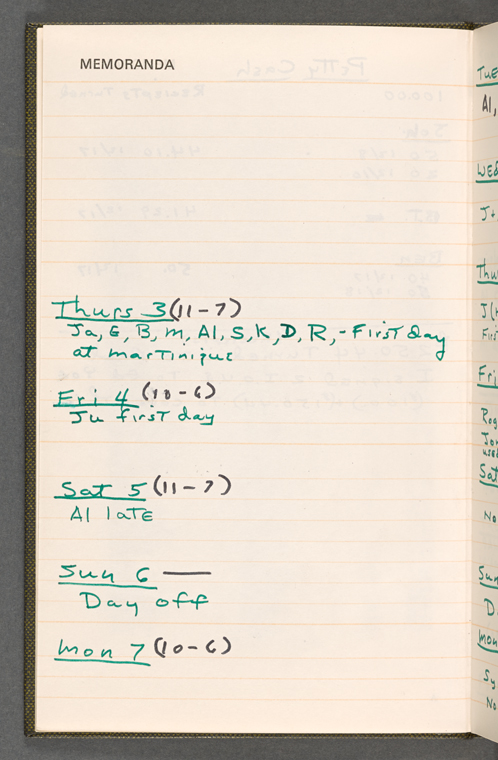 MEMORANDA
Thurs 3 (11-7)
Ja, E, B, M, Al, S, K, D, R, - First day
at Martinique
Fri 4 (10-6)
Ju first day
Sat 5 (11-7)
Al late
Sun 6 —
Day off
Mon 7 (10-6)
Tue
Al,
Wed
J+
Thu
Firs
Fri
Rog
Sat
No
Sun
D
Mon
Sy
No